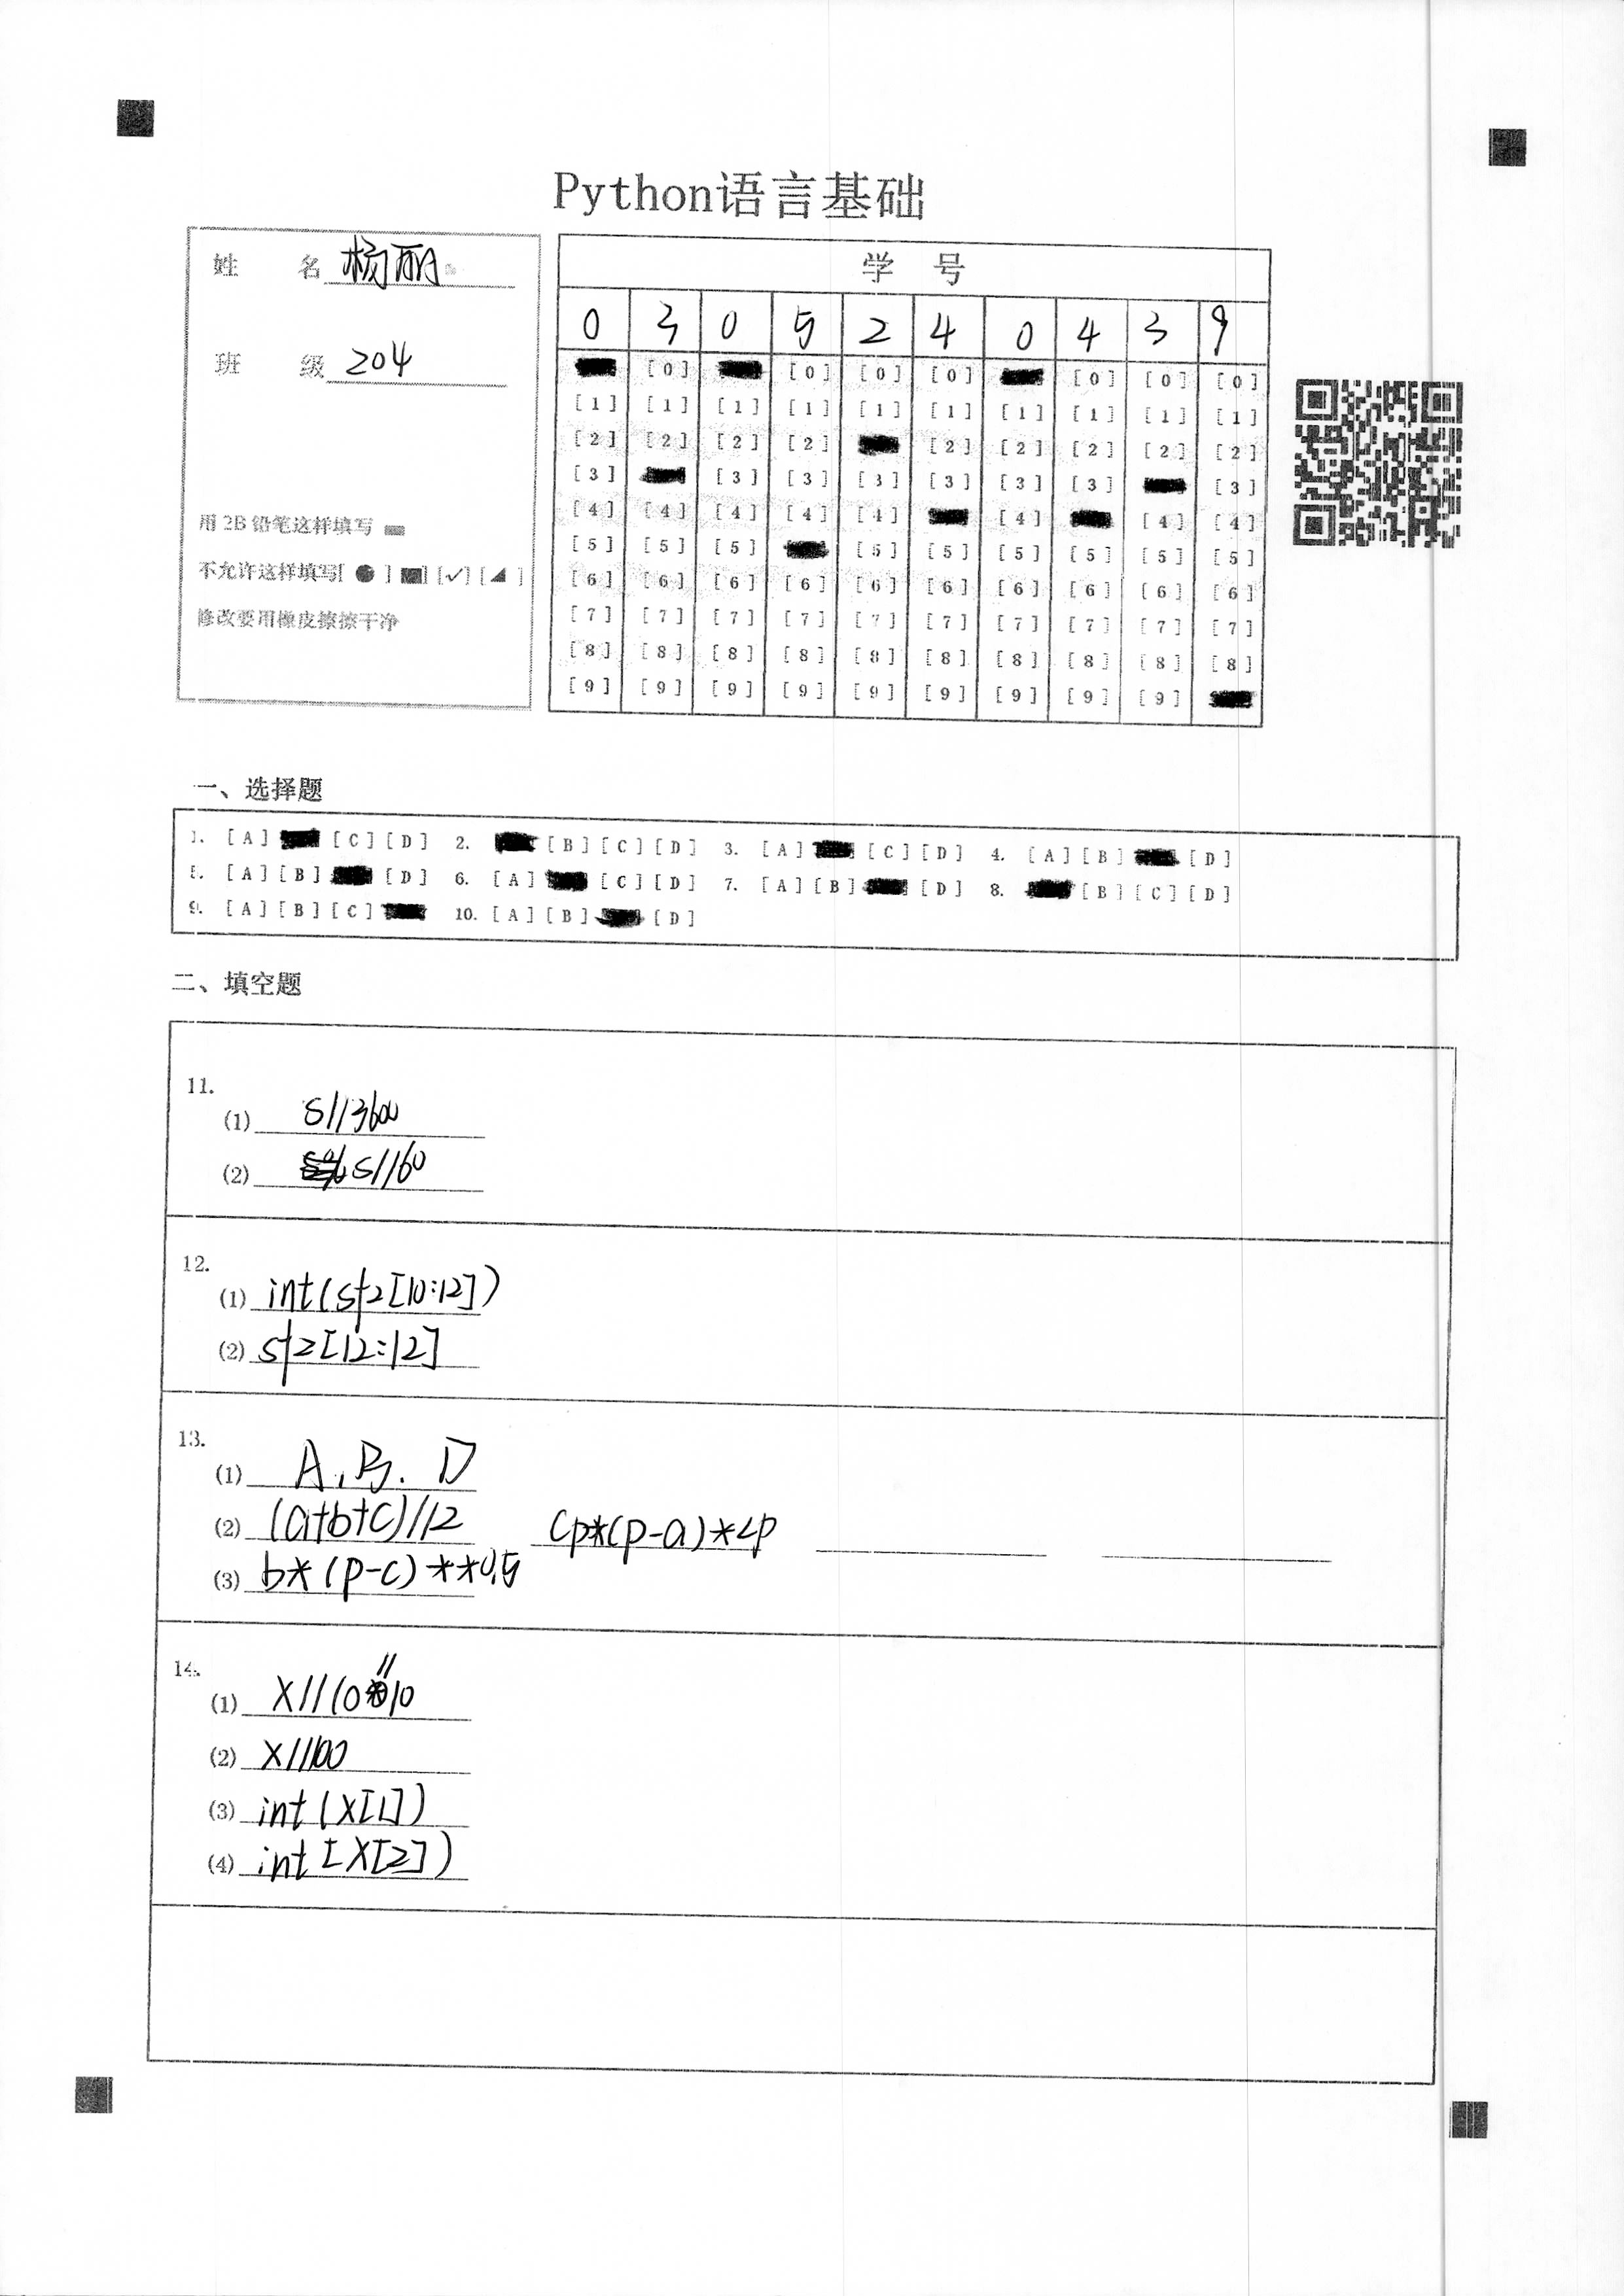 Python语言基础
姓 名 杨丽
班 级 204
用 2B 铅笔这样填写
不允许这样填写[ ● ] [■] [✓] [◢ ]
修改要用橡皮擦擦干净
学 号
0 3 0 5 2 4 0 4 3 9
[0] [0] [0] [0] [0] [0] [0]
[1] [1] [1] [1] [1] [1] [1] [1] [1] [1]
[2] [2] [2] [2] [2] [2] [2] [2] [2]
[3] [3] [3] [3] [3] [3] [3] [3]
[4] [4] [4] [4] [4] [4] [4] [4]
[5] [5] [5] [5] [5] [5] [5] [5] [5]
[6] [6] [6] [6] [6] [6] [6] [6] [6] [6]
[7] [7] [7] [7] [7] [7] [7] [7] [7] [7]
[8] [8] [8] [8] [8] [8] [8] [8] [8] [8]
[9] [9] [9] [9] [9] [9] [9] [9] [9]
一、选择题
1. [A] [C] [D] 2. [B] [C] [D] 3. [A] [C] [D] 4. [A] [B] [D]
5. [A] [B] [D] 6. [A] [C] [D] 7. [A] [B] [D] 8. [B] [C] [D]
9. [A] [B] [C] 10. [A] [B] [D]
二、填空题
11.
(1) s//3600
(2) s//60
12.
(1) int(sfz[10:12])
(2) sfz[12:12]
13.
(1) A、B、D
(2) (a+b+c)//2 (p*(p-a)*(p
(3) b*(p-c)**0.5
14.
(1) x//10//10
(2) x//100
(3) int(x[1])
(4) int[x[2])